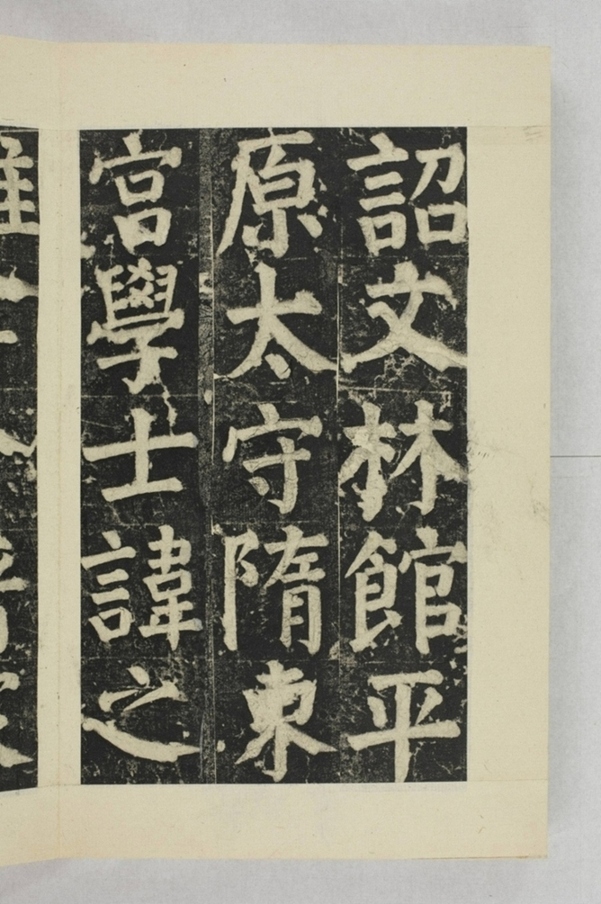 詔文林館平
原太守隋東
宮學士諱之